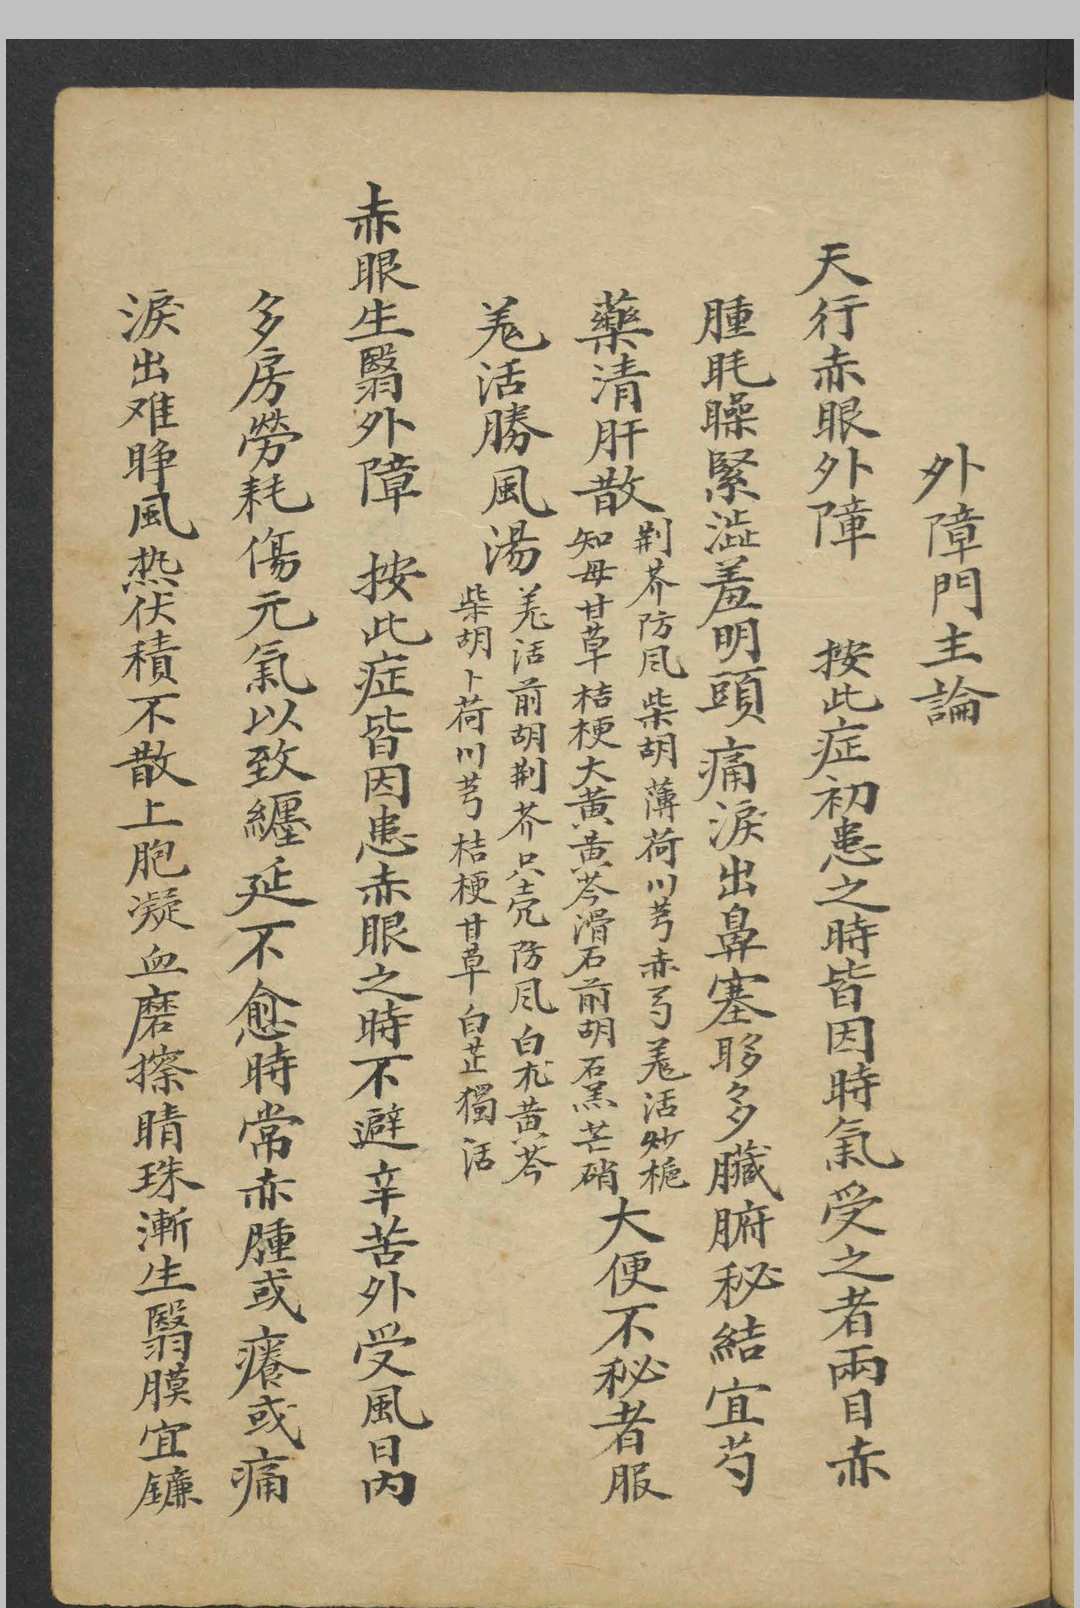 外障門主論
天行赤眼外障　按此症初患之時皆因時氣受之者兩目赤
腫眊矂緊澁羞明頭痛淚出鼻塞眵多臟腑秘結宜芍
藥清肝散
荆芥防风柴胡薄荷川芎赤芍羗活炒栀
知母甘草桔梗大黄黄芩滑石前胡石羔芒硝
大便不秘者服
羗活勝風湯
羗活前胡荆芥只壳防风白朮黄芩
柴胡卜荷川芎桔梗甘草白芷獨活
赤眼生翳外障　按此症皆因患赤眼之時不避辛苦外受風日内
多房勞耗傷元氣以致纏延不愈時常赤腫或癢或痛
淚出难睁風热伏積不散上胞凝血磨擦睛珠漸生翳膜宜鐮